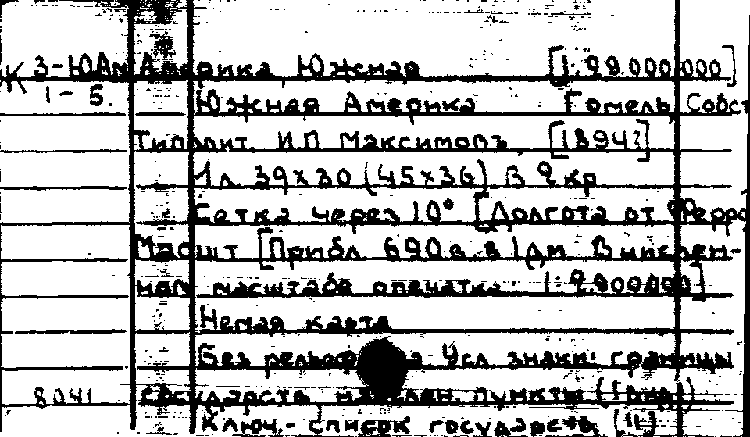 К 3-ЮАм Америка Южная [1:29.000.000]
1-5. Южная Америка Гомель, Собст
Типолит. И.П. Максимовъ, [1894?]
1 л. 39х30 (45х36) В 2 кр
Сетка через 10° [Долгота от Ферро]
Масшт [Прибл. 690в. в 1дм. В числен-
ном масштабе опечатка: 1:2.900.000]
Немая карта
Без рельефа Усл. знаки: границы
8041 государств, населен. пункты
Ключ.- список государств (11)